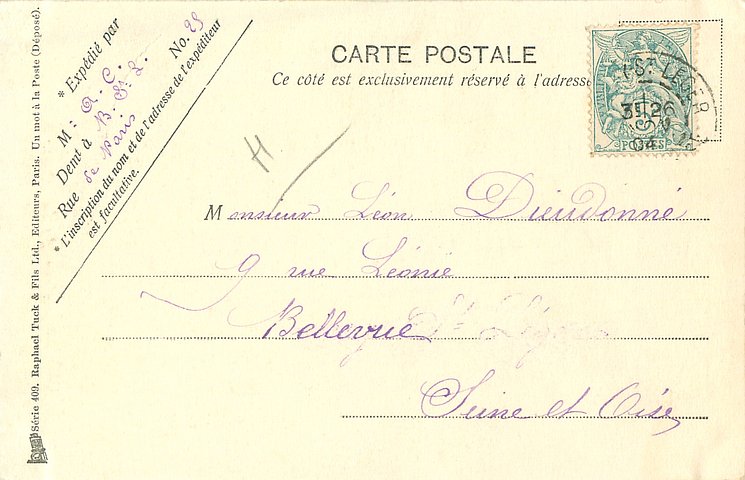 CARTE POSTALE
Ce côté est exclusivement réservé à l'adresse
* Expédié par
M = A. C.
Demt à B. St L.
Rue de Paris No. 25
* L'inscription du nom et de l'adresse de l'expéditeur
est facultative.
H
Monsieur Léon Dieudonné
9 rue Léonie
Bellevue St Léger
Seine et Oise
ST LEGER
3E 26
04
POSTES
Série 409. Raphael Tuck & Fils Ltd., Editeurs, Paris. Un mot à la Poste (Déposé).